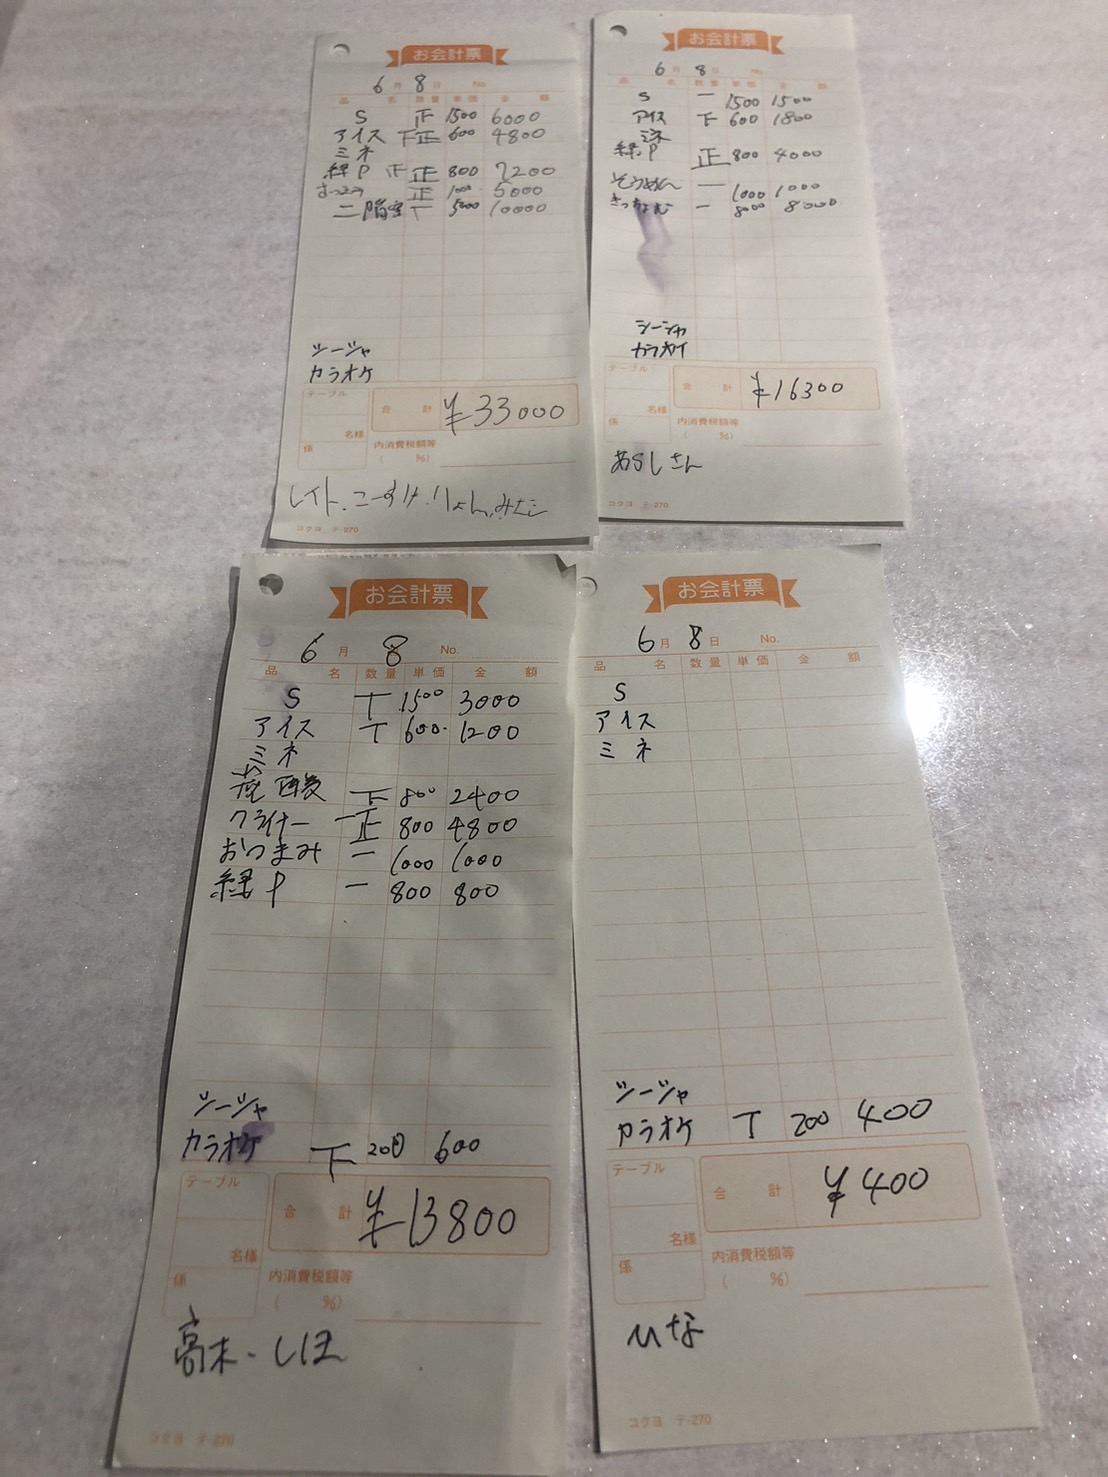 お会計票
6月 8日 No.
品 名 数量 単価 金 額
S 正 1500 6000
アイス 下正 600 4800
ミネ
緑P 正 正 800 7200
正 1000 5000
二階堂 T 5000 10000
シージャ
カラオケ
テーブル
合 計 ¥33000
名様
係
内消費税額等
( %)
レイト.こーすけ.りょん.みなと
コクヨ テ-270
お会計票
6月 8日 No.
品 名 数量 単価 金 額
S 一 1500 1500
アイス 下 600 1800
ミネ
緑P 正 800 4000
そうめん 一 1000 1000
きっちょむ 一 8000 8000
シーシャ
カラオケ
テーブル
合 計 ¥16300
名様
係
内消費税額等
( %)
あらしさん
コクヨ テ-270
お会計票
6月 8 No.
品 名 数量 単価 金 額
S T 1500 3000
アイス T 600 1200
ミネ
下 800 2400
クライナー 一正 800 4800
おつまみ 一 1000 1000
緑P 一 800 800
シーシャ
カラオケ 下 200 600
テーブル
合 計 ¥13800
名様
係
内消費税額等
( %)
高木・しほ
コクヨ テ-270
お会計票
6月 8日 No.
品 名 数量 単価 金 額
S
アイス
ミネ
シーシャ
カラオケ T 200 400
テーブル
合 計 ¥400
名様
係
内消費税額等
( %)
ひな
コクヨ テ-270